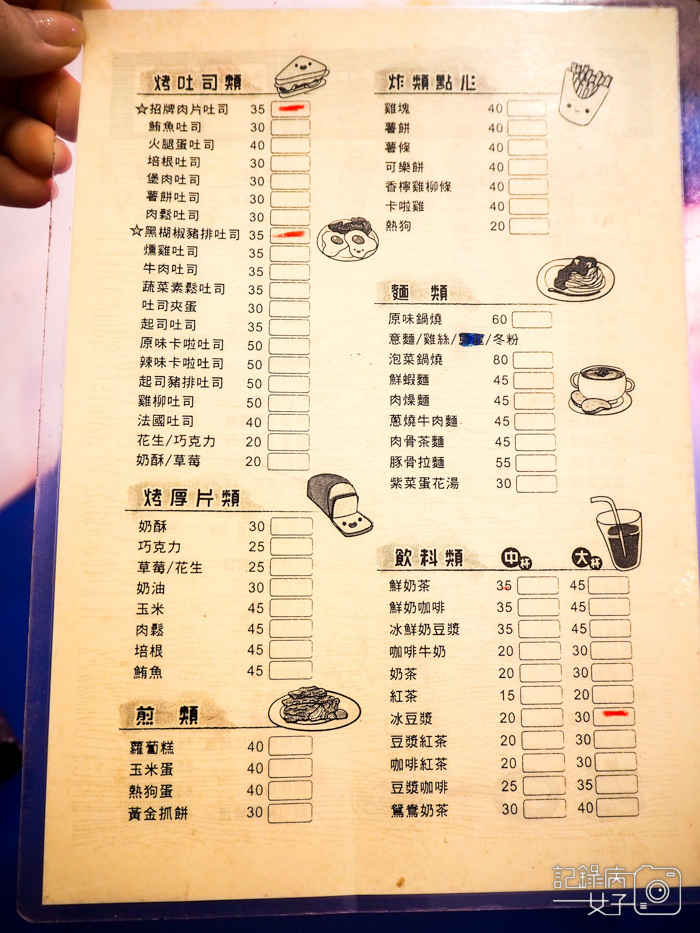 烤吐司類
☆招牌肉片吐司 35
鮪魚吐司 30
火腿蛋吐司 40
培根吐司 30
堡肉吐司 30
薯餅吐司 30
肉鬆吐司 30
☆黑糊椒豬排吐司 35
燻雞吐司 35
牛肉吐司 35
蔬菜素鬆吐司 35
吐司夾蛋 30
起司吐司 35
原味卡啦吐司 50
辣味卡啦吐司 50
起司豬排吐司 50
雞柳吐司 50
法國吐司 40
花生/巧克力 20
奶酥/草莓 20
烤厚片類
奶酥 30
巧克力 25
草莓/花生 25
奶油 30
玉米 45
肉鬆 45
培根 45
鮪魚 45
煎類
蘿蔔糕 40
玉米蛋 40
熱狗蛋 40
黃金抓餅 30
炸類點心
雞塊 40
薯餅 40
薯條 40
可樂餅 40
香檸雞柳條 40
卡啦雞 40
熱狗 20
麵類
原味鍋燒 60
意麵/雞絲/ /冬粉
泡菜鍋燒 80
鮮蝦麵 45
肉燥麵 45
蔥燒牛肉麵 45
肉骨茶麵 45
豚骨拉麵 55
紫菜蛋花湯 30
飲料類 中杯 大杯
鮮奶茶 35 45
鮮奶咖啡 35 45
冰鮮奶豆漿 35 45
咖啡牛奶 20 30
奶茶 20 30
紅茶 15 20
冰豆漿 20 30
豆漿紅茶 20 30
咖啡紅茶 20 30
豆漿咖啡 25 35
鴛鴦奶茶 30 40
記錄病
女子